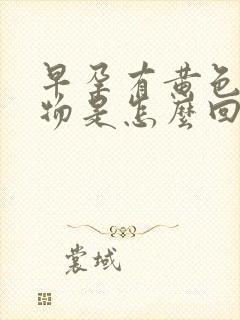 早孕有黄色
物是怎麼回
裳域